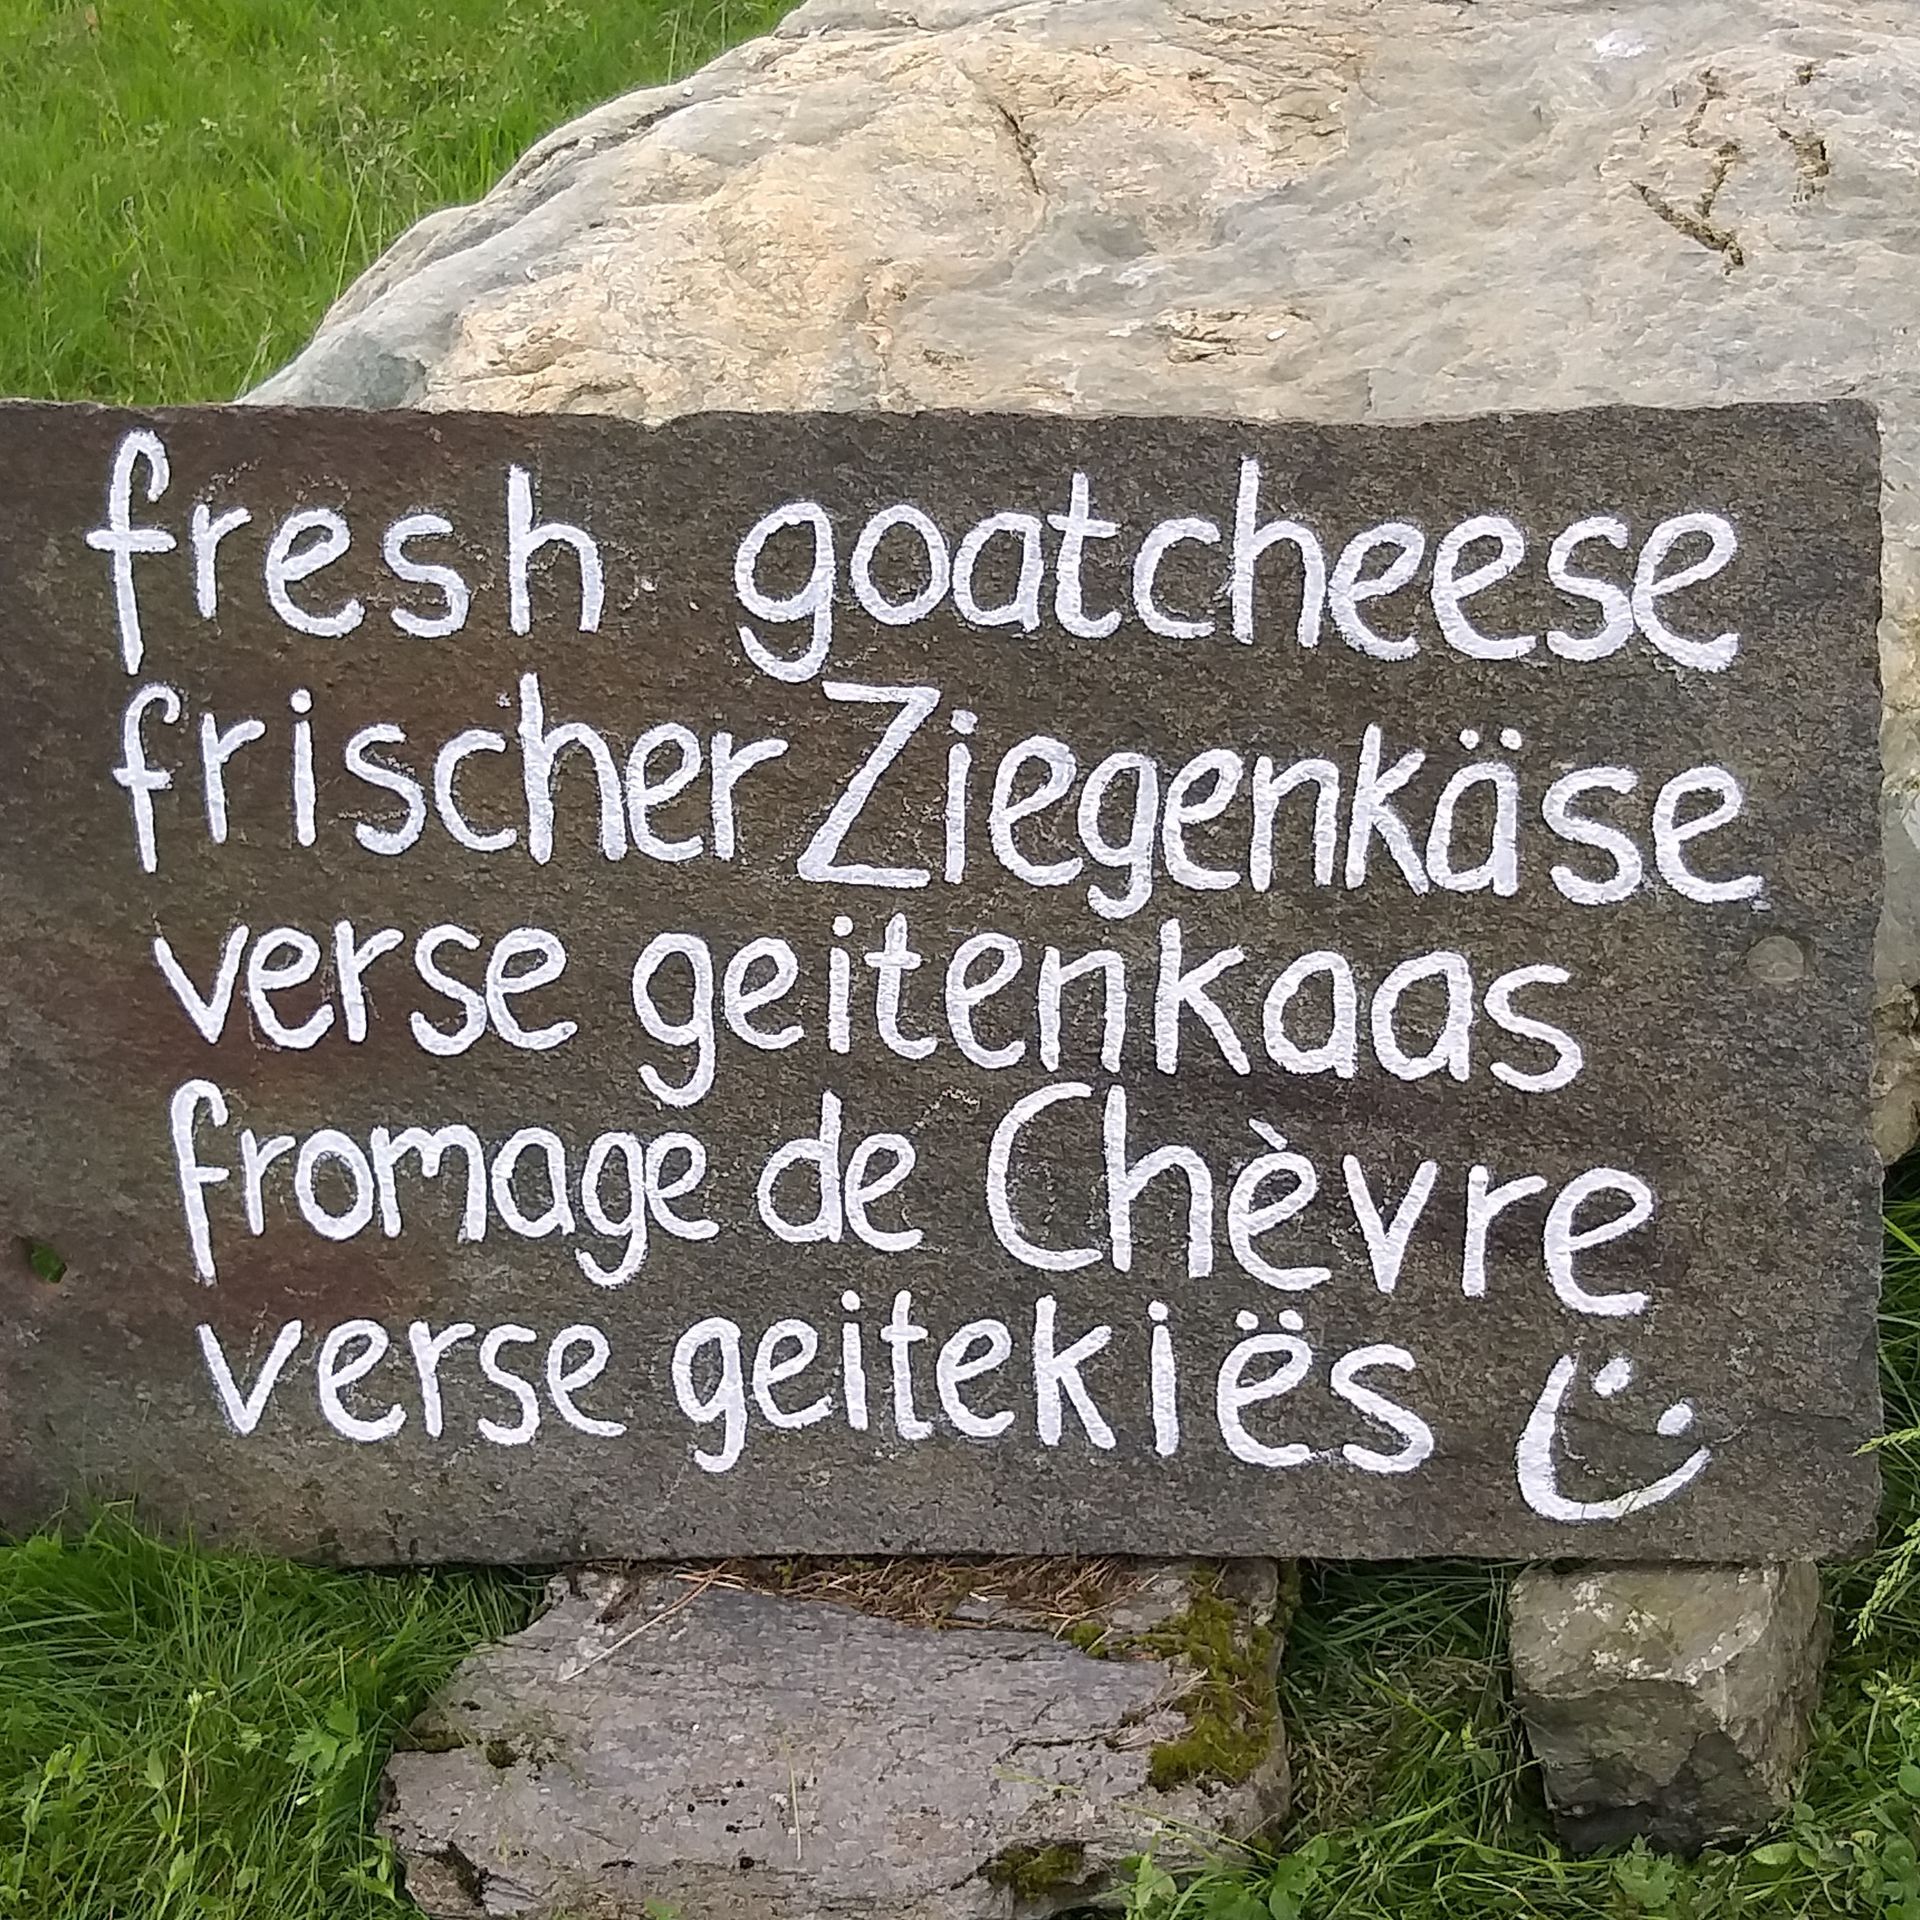 fresh goatcheese
frischer Ziegenkäse
verse geitenkaas
fromage de Chèvre
verse geitekiës